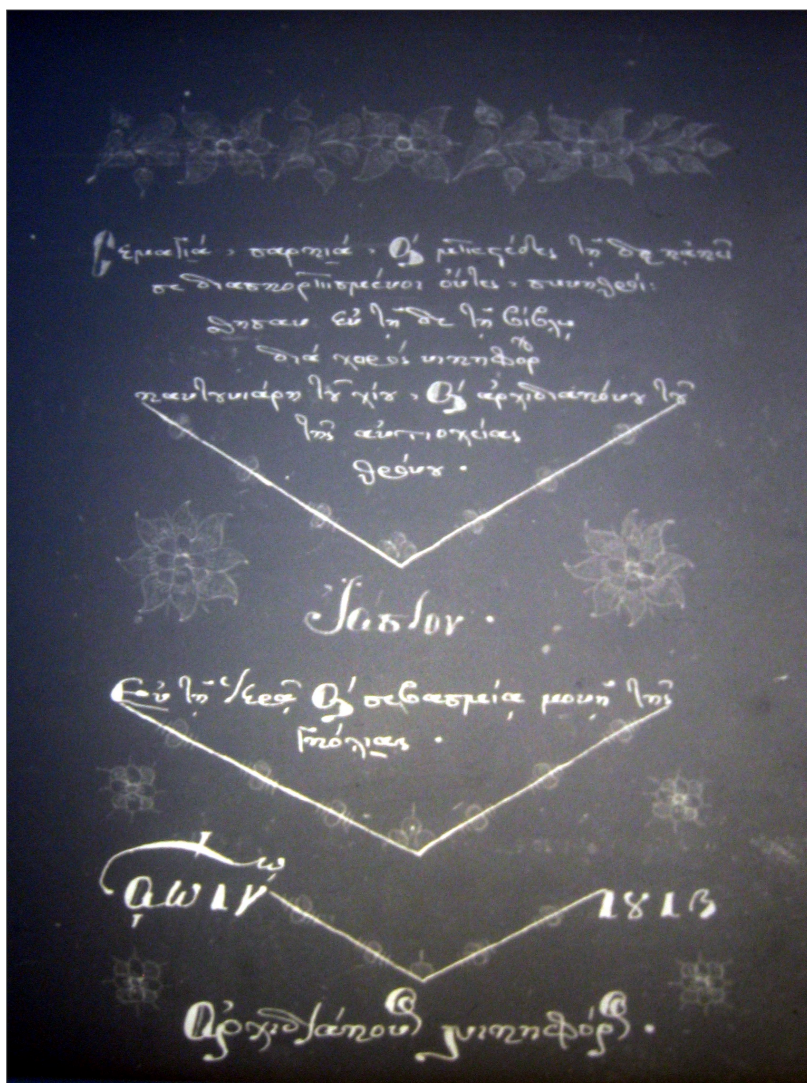 Σεμαγιά, σαρκιά, καὶ τῇ δε κἀκεῖ
διασκορπισμένοι ὄντες, συνηθροί:
σθησαν ἐν τῇ δε τῇ βίβλῳ
διά χειρός νικηφόρου
καντουνιάρη τοῦ χίου, καὶ ἀρχιδιακόνου τοῦ
τῆς ἀντιοχείας
θρόνου.
Ἰάσιον.
Ἐν τῇ ἱερᾷ καὶ σεβασμείᾳ μονῇ τῆς
Γκόλιας.
αωιγ 1813
Ἀρχιδιάκονος νικηφόρος.